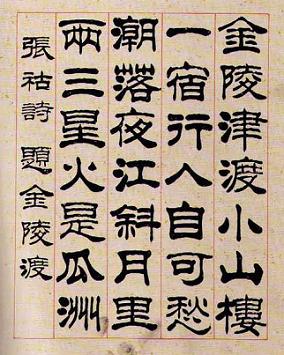 金陵津渡小山樓
一宿行人自可愁
潮落夜江斜月里
兩三星火是瓜洲
張祜詩 題金陵渡